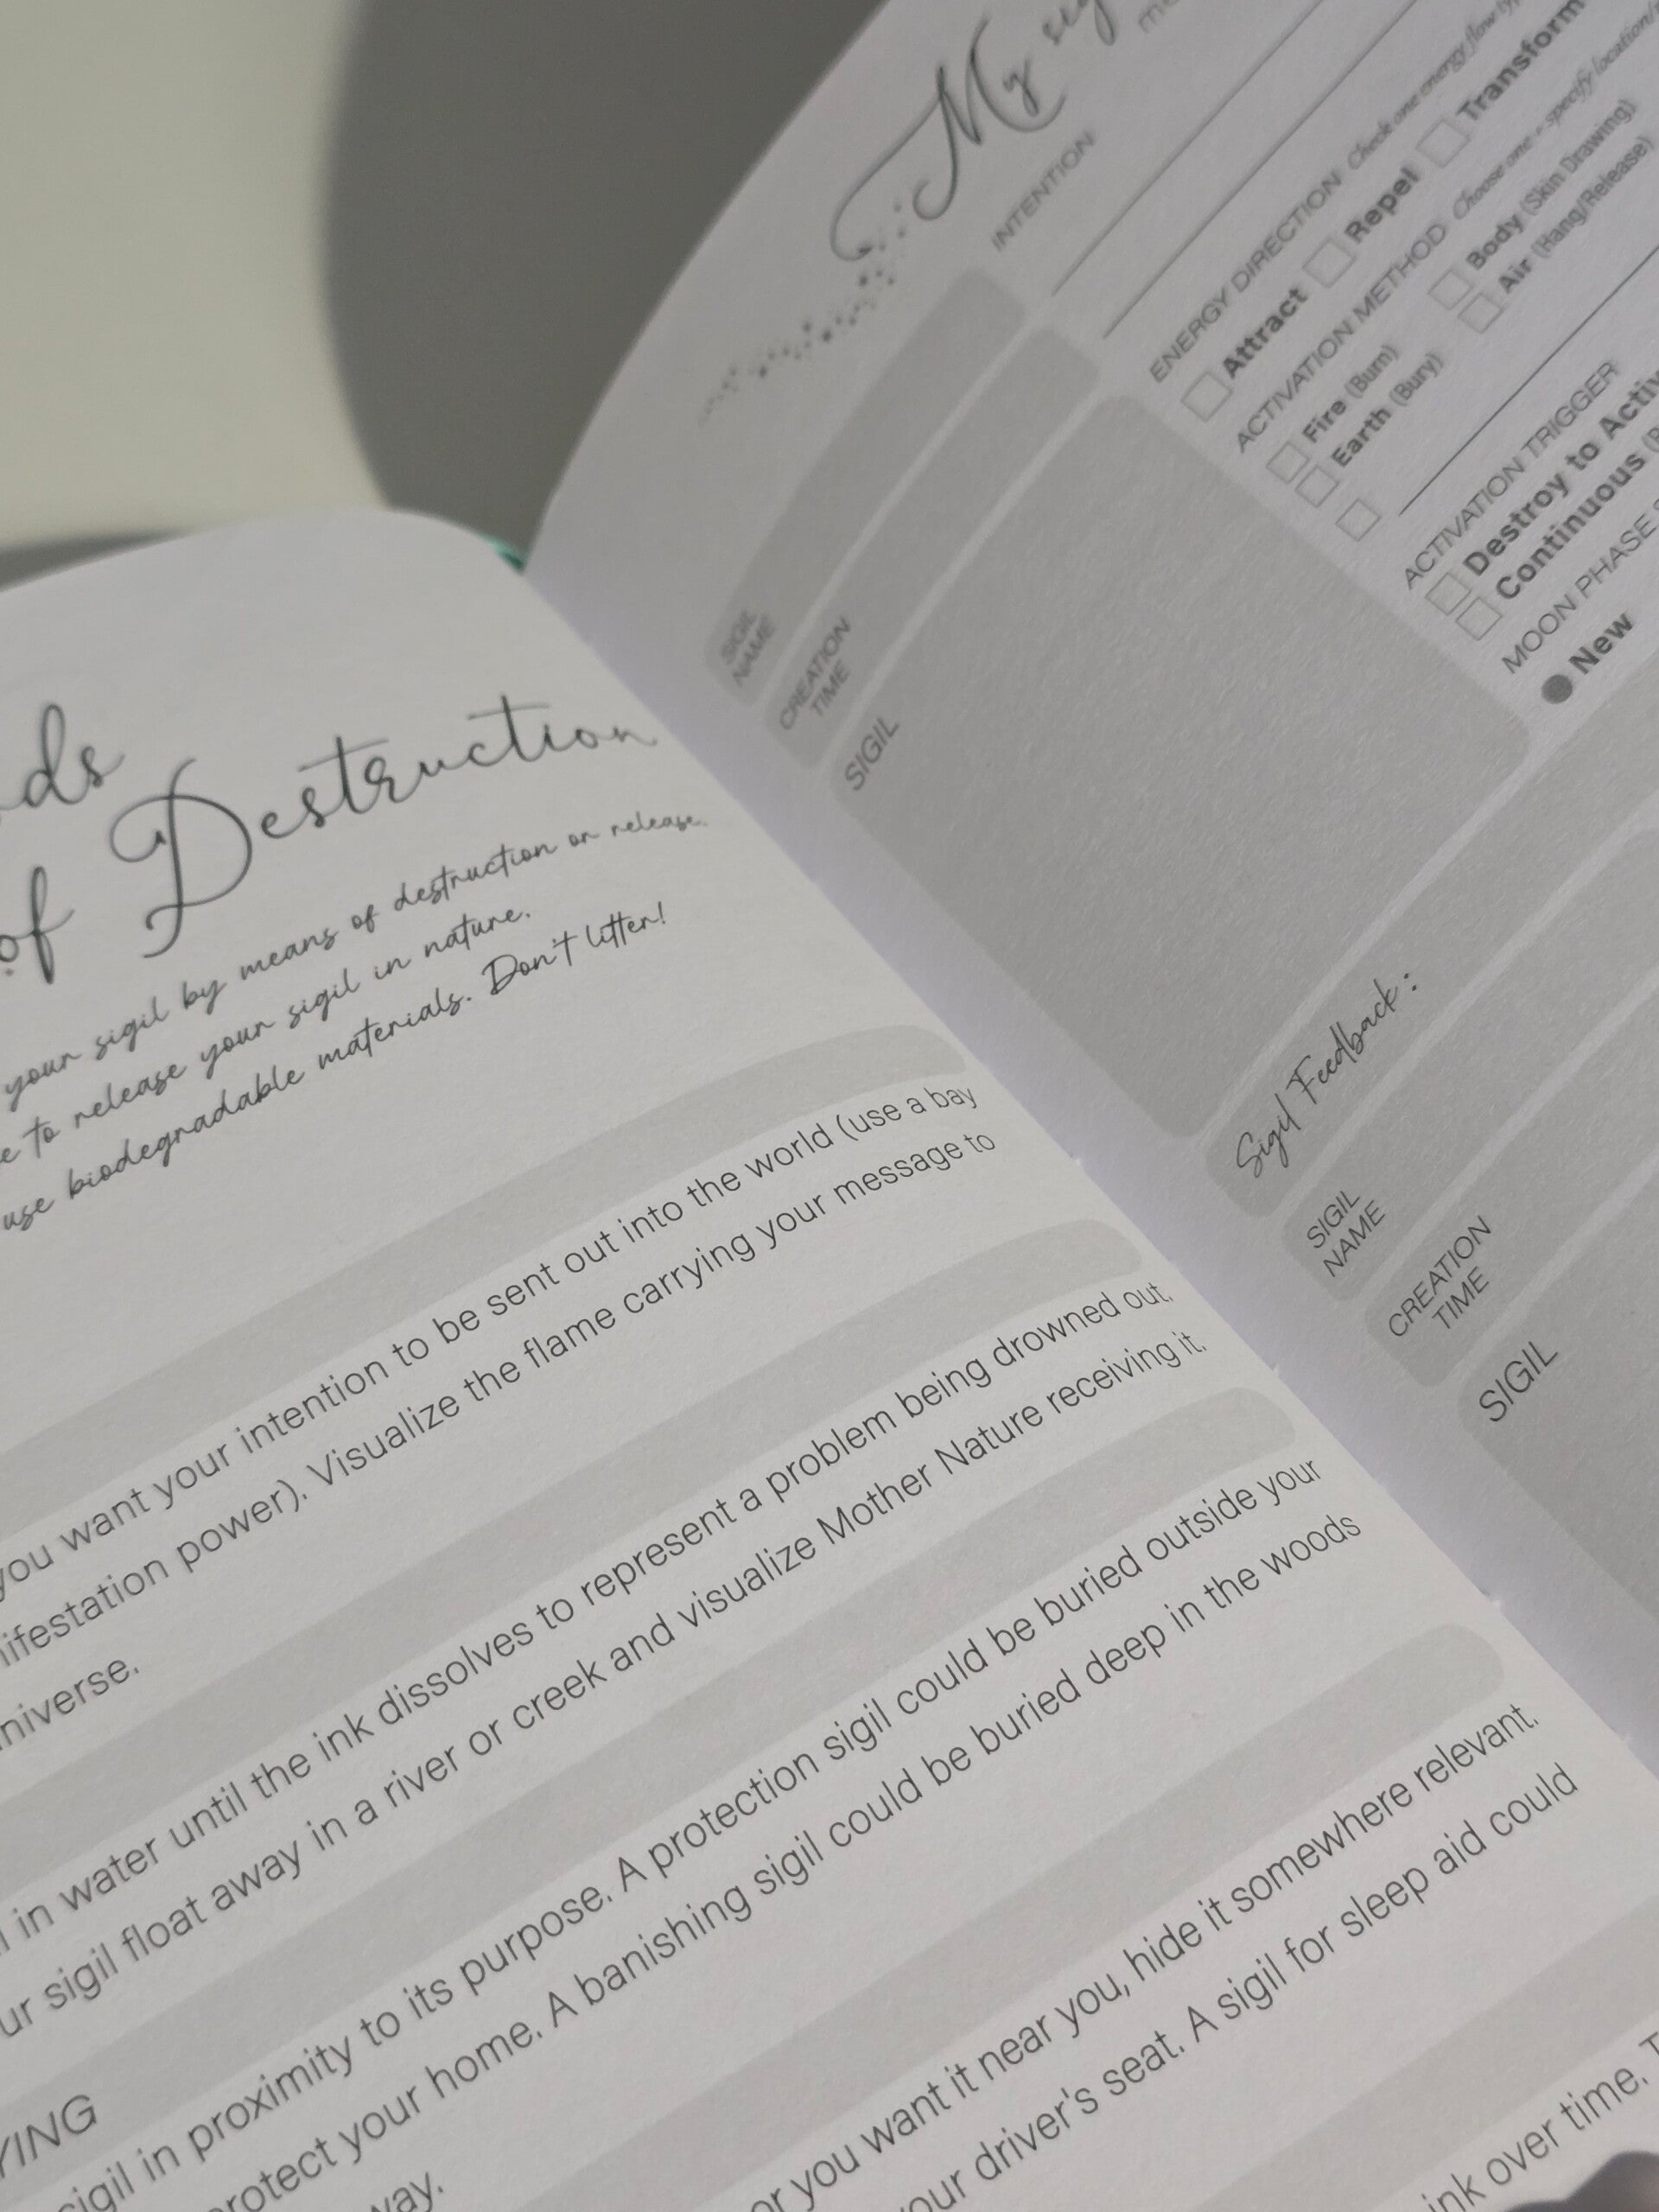 of Destruction
your sigil by means of destruction or release.
to release your sigil in nature.
use biodegradable materials. Don't litter!
you want your intention to be sent out into the world (use a bay
power). Visualize the flame carrying your message to
in water until the ink dissolves to represent a problem being drowned out.
sigil float away in a river or creek and visualize Mother Nature receiving it.
sigil in proximity to its purpose. A protection sigil could be buried outside your
protect your home. A banishing sigil could be buried deep in the woods
you want it near you, hide it somewhere relevant.
your driver's seat. A sigil for sleep aid could
ink over time.
My
INTENTION
SIGIL
NAME
CREATION
TIME
SIGIL
ENERGY DIRECTION Check one energy flow
Attract Repel Transform
ACTIVATION METHOD Choose one + specify
Fire (Burn) Body (Skin Drawing)
Earth (Bury) Air (Hang/Release)
ACTIVATION TRIGGER
Destroy to
Continuous
MOON PHASE
New
Sigil Feedback:
SIGIL
NAME
CREATION
TIME
SIGIL